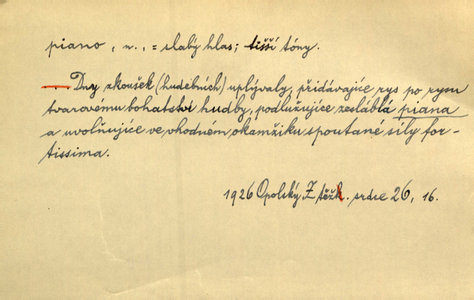 piano, n., = slabý hlas; tišší tóny.
— Dny zkoušek (hudebních) uplývaly, přidávajíce rys po rysu
tvarovému bohatství hudby, podlužujíce zeslábla piana
a uvolňujíce ve vhodném okamžiku spoutané síly for-
tissima.
1926 Opolský Z těžk. srdce 26, 16.